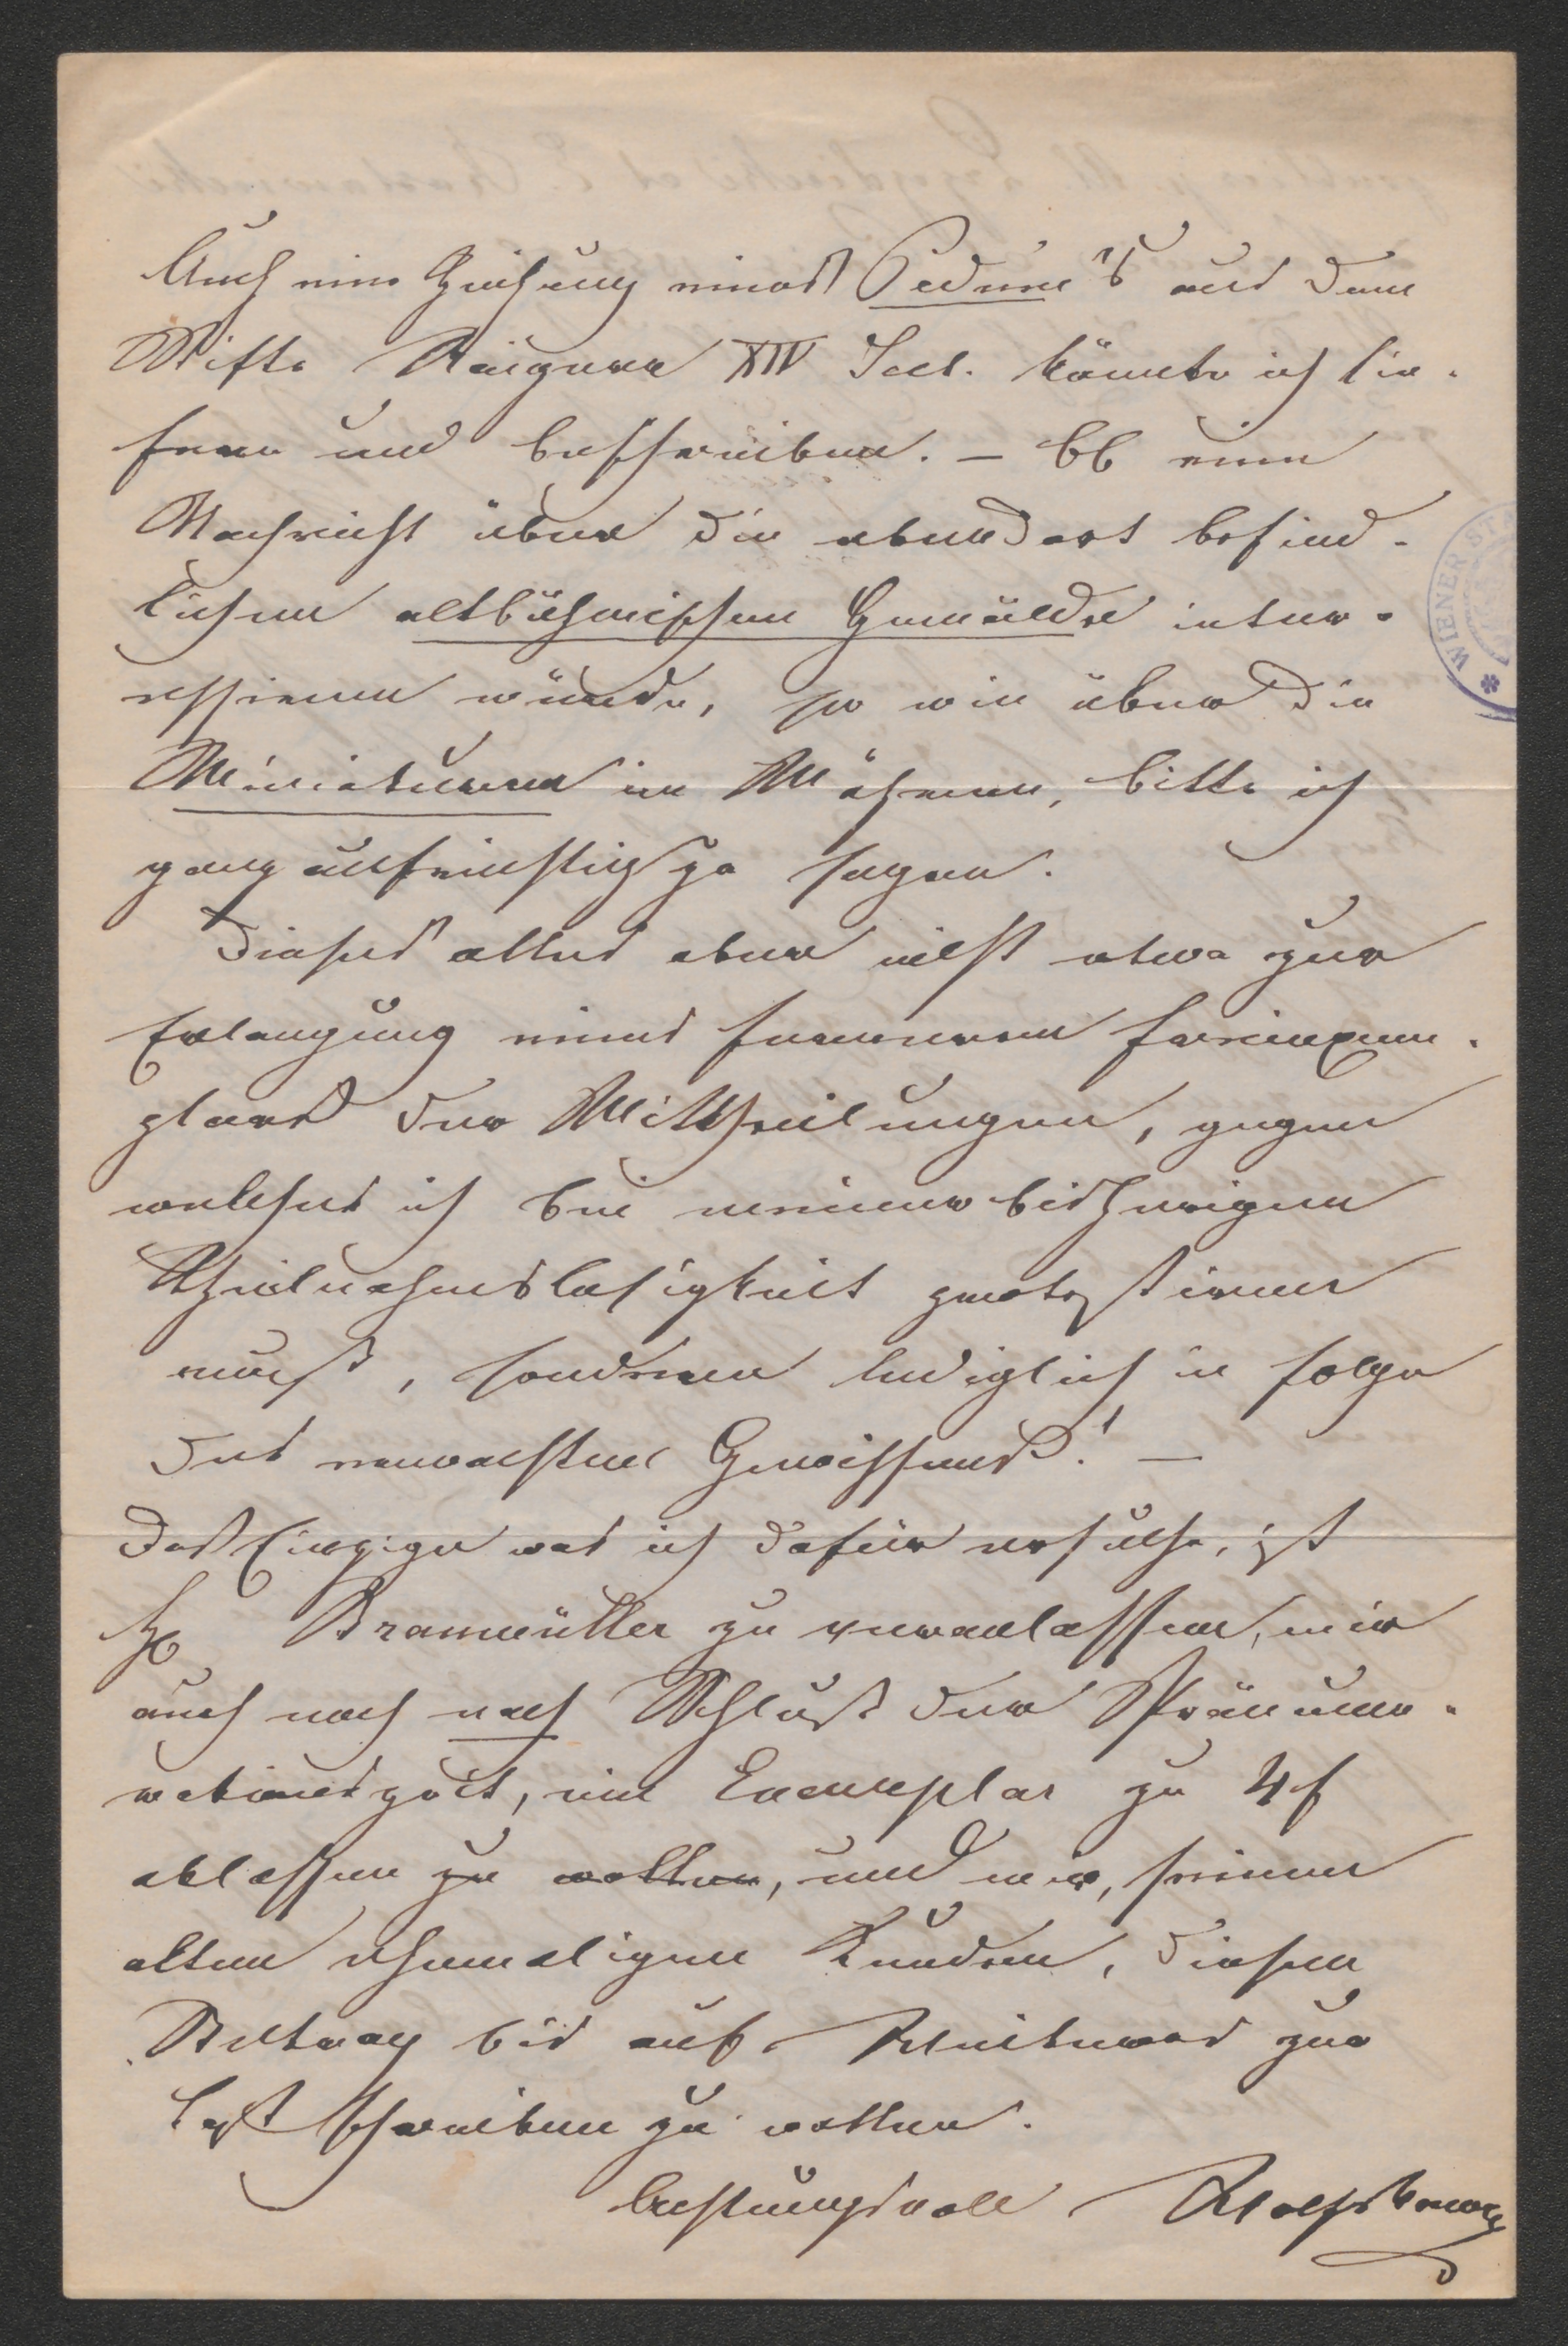 Auch eine Zeichnung eines Pedum's aus dem
Stifte Raigern XIV Secl. könnte ich lie-
fern und beschreiben. – Ob eine
Nachricht über die ebendort befind-
lichen altböhmischen Gemälde inter-
essieren würde, so wie über die
Miniaturen in Mähren, bitte ich
ganz aufrichtig zu sagen.
Dieses alles aber nicht etwa zur
Erlangung eines ferneren Freiexem-
plars der Mittheilungen, gegen
welches ich bei meiner bisherigen
Theilnahmslosigkeit protestieren
muß, sondern lediglich in Folge
des erwachten Gewissens! –
Das Einzige was ich dafür ersuche, ist
H Braumüller zu veranlassen, mir
auch noch nach Schluß der Pränume-
rationszeit, ein Exemplar zu 4 f
ablassen zu wollen, und mir, seinem
alten ehemaligen Kunden, diesen
Betrag bis auf Weiteres zur
Last schreiben zu wollen.
Achtungsvoll Wolfskron
WIENER ST